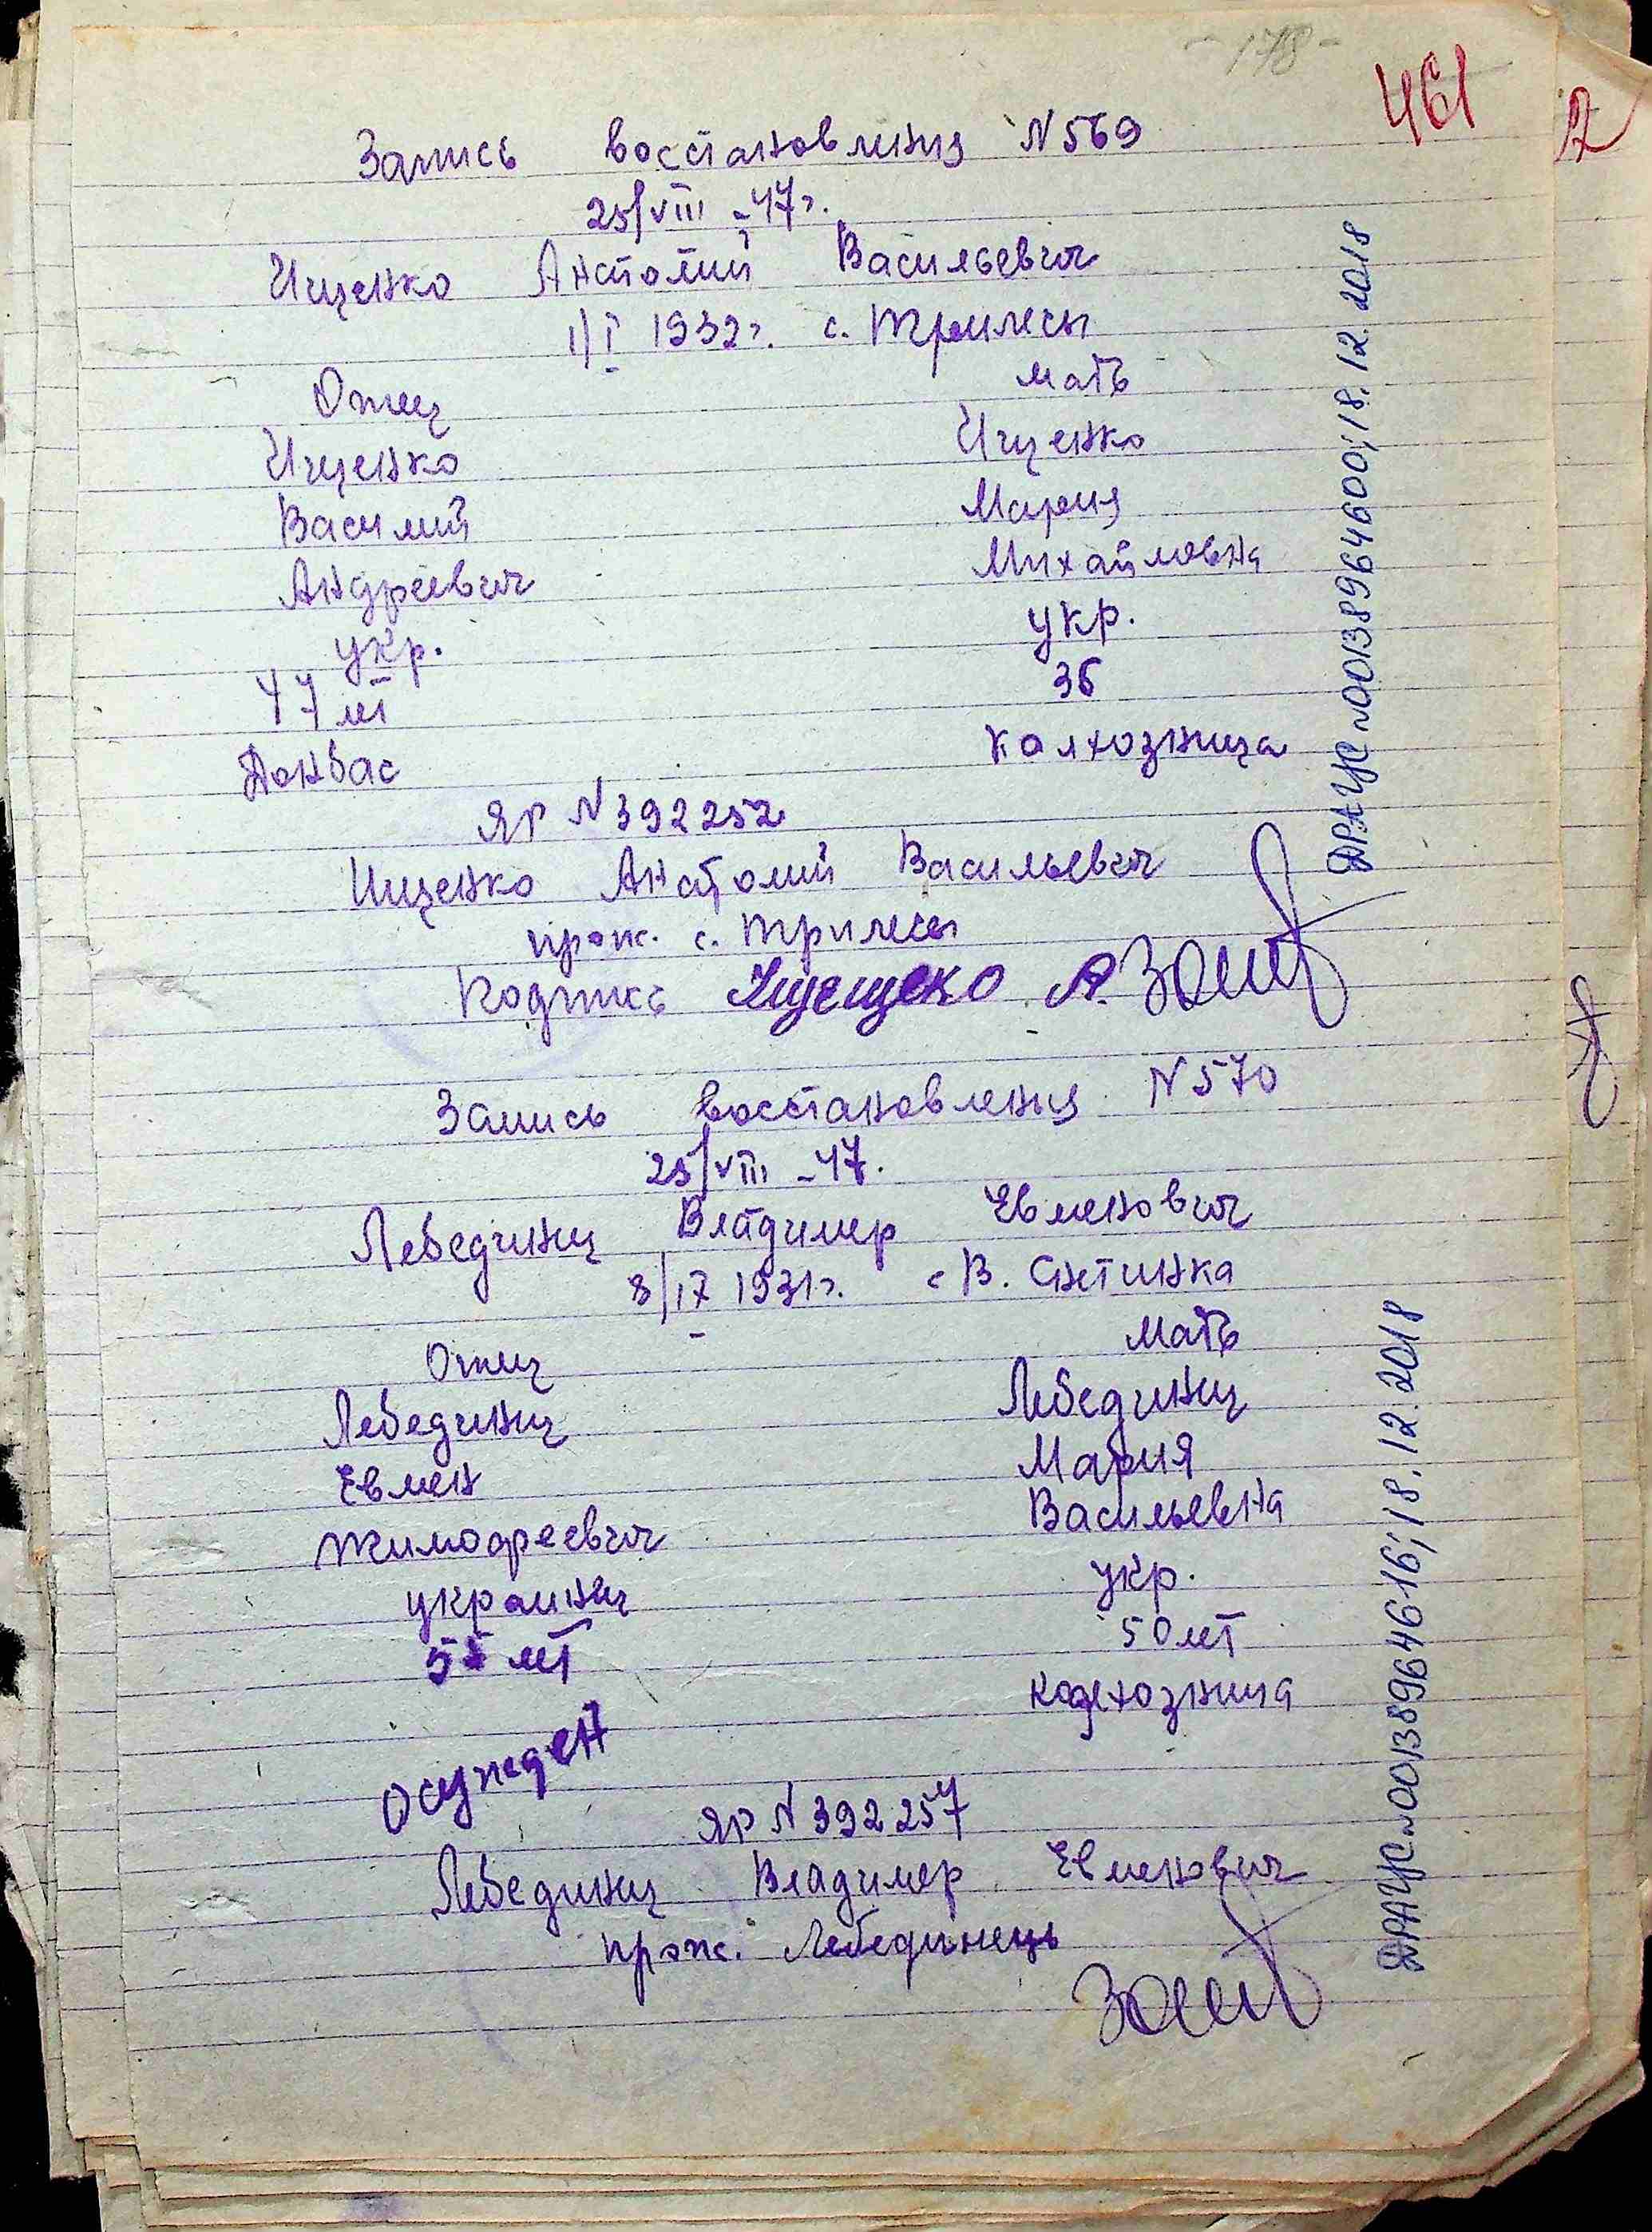 - 178 -
461
Запись восстановления N 569
25/VIII - 47 г.
Ищенко Анатолий Васильевич
1/I 1932 г. с. Трилесы
Отец
Мать
Ищенко
Ищенко
Василий
Мария
Андреевич
Михайловна
укр.
укр.
47 лет
36
Донбас
колхозница
ЯР N 392252
Ищенко Анатолий Васильевич
прож. с. Трилесы
Подпись Ищенко А.
ДРАЦС №00138964600; 18.12.2018
Запись восстановления N 570
25/VIII - 47.
Лебединец Владимер Евменович
8/IX 1931 г. с В. Снетинка
Отец
Мать
Лебединец
Лебединец
Евмен
Мария
Тимофеевич
Васильевна
украинец
укр.
лет
50 лет
Осужден
колхозница
ЯР N 392257
Лебединец Владимер Евменович
прож. Лебединець
ДРАЦС №00138964616; 18.12.2018